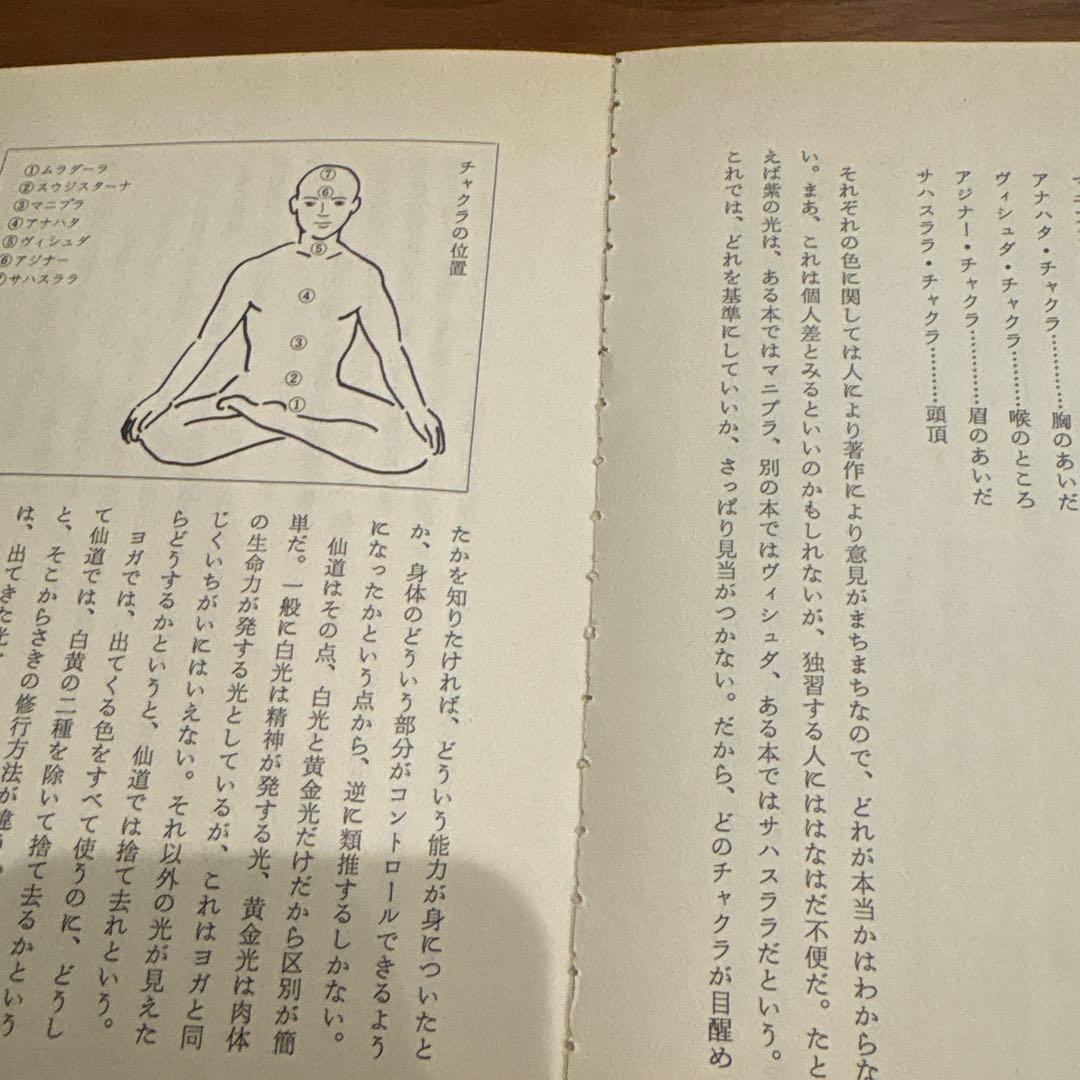 アナハタ・チャクラ…………胸のあいだ
ヴィシュダ・チャクラ………喉のところ
アジナー・チャクラ…………眉のあいだ
サハスララ・チャクラ………頭頂
それぞれの色に関しては人により著作により意見がまちまちなので、どれが本当かはわからな
い。まあ、これは個人差とみるといいのかもしれないが、独習する人にははなはだ不便だ。たと
えば紫の光は、ある本ではマニプラ、別の本ではヴィシュダ、ある本ではサハスララだという。
これでは、どれを基準にしていいか、さっぱり見当がつかない。だから、どのチャクラが目醒め
チャクラの位置
①ムラダーラ
②スウジスターナ
③マニプラ
④アナハタ
⑤ヴィシュダ
⑥アジナー
⑦サハスララ
⑦
⑥
⑤
④
③
②
①
たかを知りたければ、どういう能力が身についたと
か、身体のどういう部分がコントロールできるよう
になったかという点から、逆に類推するしかない。
仙道はその点、白光と黄金光だけだから区別が簡
単だ。一般に白光は精神が発する光、黄金光は肉体
の生命力が発する光としているが、これはヨガと同
じくいちがいにはいえない。それ以外の光が見えた
らどうするかというと、仙道では捨て去れという。
ヨガでは、出てくる色をすべて使うのに、どうし
て仙道では、白黄の二種を除いて捨て去るかという
と、そこからさきの修行方法が違う
は、出てきた光